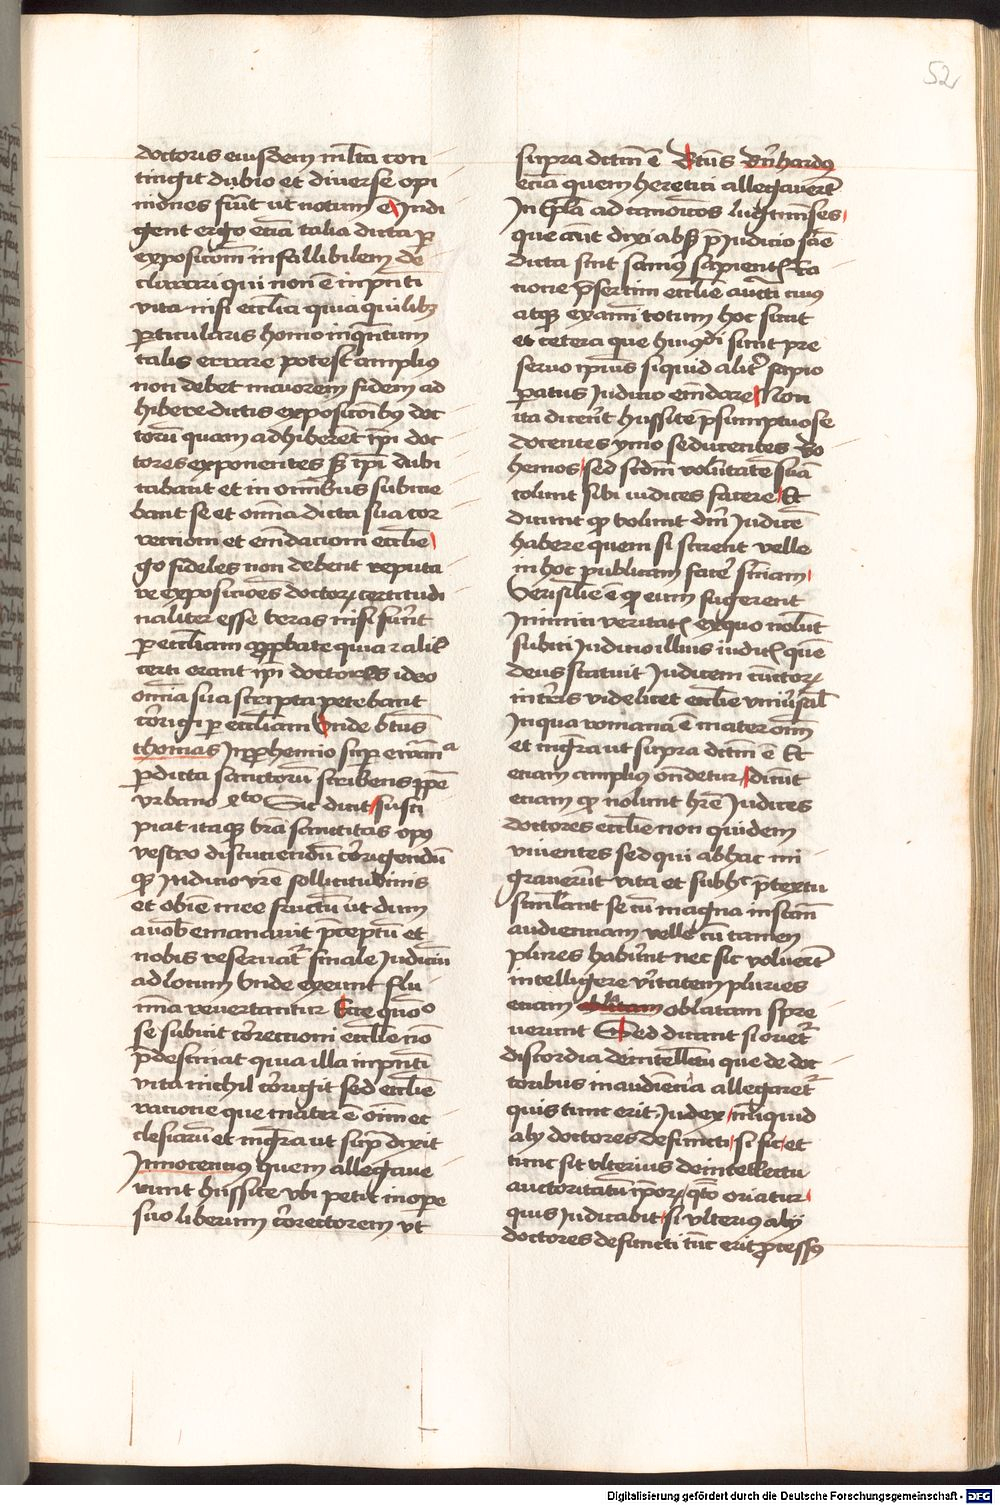 52
doctoris eiusdem ml̅ta con
tingit dubio et diuerse opi
niones su̅t ut notum e̅ Indi
gent ergo ecia̅ talia dicta ꝑ
exposicōem infallibilem de
clarari qui non e̅ in pn̅ti
vita nisi eccl̅ia quia quilibꝫ
ꝑticularis homo inqn̅tum
talis errare potest amplius
non debet maiorem fidem ad
hibere dictis exposicōibꝫ doc
toru̅ quam adhibere̅t ip̅i doc
tores exponentes sꝫ ip̅i dubi
taba̅t et in om̅ibus subicie
bant se et om̅ia dicta sua cor
rectioni et eme̅dacioni eccl̅ie
go fideles non debent reputa
re exposicio̅es doctoꝝ certitudi
naliter esse veras nisi fu̅nt
ꝑ eccl̅iam app̅bate quia r alit̅
certi erant ip̅i doctores ideo
om̅ia sua scripta petebant
co̅rigi ꝑ eccl̅iam Vnde bt̅us
thomas In p̅hemio sup̅ ewa̅na
p̅dicta sanctoru̅ scribens p̅pe
vrbano 4to Sic dicit suscі
piat itaqꝫ v̅ra sanctitas opꝰ
vestro discuciendu̅ co̅rigendu̅
qꝫ Iudicio vr̅e sollicitudinis
et obie̅ mee fructu̅ ut dum
a uob̅ emanauit p̅ceptu̅ et
nobis reseruat̅ finale Iudiciu̅
ad locum vnde exeunt flu
mi̅a reuertantur Ecce quoo
se subicit co̅rectioni eccl̅ie no̅
p̅destinat quia illa in pn̅ti
vita nichil co̅rigit sed eccl̅ie
racione que mater e̅ om̅i ec
clesiaru̅ et mgr̅a ut sup̅ dixit
Innocencius quem allegaue
runt hussite vbi petit in ope
suo liberum co̅rectorem vt
supra dictm̅ e̅ Bt̅us Bn̅hardꝰ
ecia̅ quem heretici allegauer̅t
In Ep̅la ad canonicos lugdune̅ses
que au̅t dixi absqꝫ p̅iudicio sa̅e
dicta sint saniꝰ sapient̅ Ro
mane p̅sertim eccl̅ie auct̅ti cuiꝰ
atqꝫ exam̅i totum hoc sicut
et cetera que huiꝰdi sunt pre
seruo ip̅ius siquid alit̅ sapio
paratus Iudicio eme̅dare Non
ita dicer̅t hussite p̅sumptuose
docentes ymo seducentes Bo
hemos sed scd̅m volu̅tate̅ sua̅
tolunt sibi iudices facere Et
dicunt qꝫ volunt dm̅ Iudice̅
habere quem si scirent velle
in hoc publicam fac̅e sn̅iam
Verisil̅e e̅ qꝫ eum fugerent
Inimici veritat̅ ex quo nolu̅t
subici Iudicio illius iudic̅ que̅
deus statuit Iudicem cu̅ctoꝝ
in tr̅is videlicet eccl̅ie vniu̅sal̅
In qua romana e̅ mater om̅i
et mgr̅a ut supra dictm̅ e̅ Et
eciam amplius onde̅tur dicu̅t
eciam qꝫ nolunt hr̅e Iudices
doctores eccl̅ie non quidem
viuentes sed qui ab hac mi
grauer̅t vita et sub hͨ p̅textu
simula̅nt se cu̅ magna instan̅
audienciam velle cu̅ tamen
plures habuer̅t nec sic voluer̅t
intelligere v̅itatem pluries
eciam oblatam spre
uerunt Sed dicant si oriet̅
discordia de intellectu̅ que de doc
toribus in audie̅ncia allegare̅t̅
quis tunc erit Iudex numquid
alij doctores defuncti si sic et
tunc sit vlterius de intellectu
auctoritatu̅ ip̅oꝝ qo̅ oriatur
quis Iudicabit si vlterius alij
doctores defuncti tu̅c erit ꝓcessꝰ
Digitalisierung gefördert durch die Deutsche Forschungsgemeinschaft - DFG